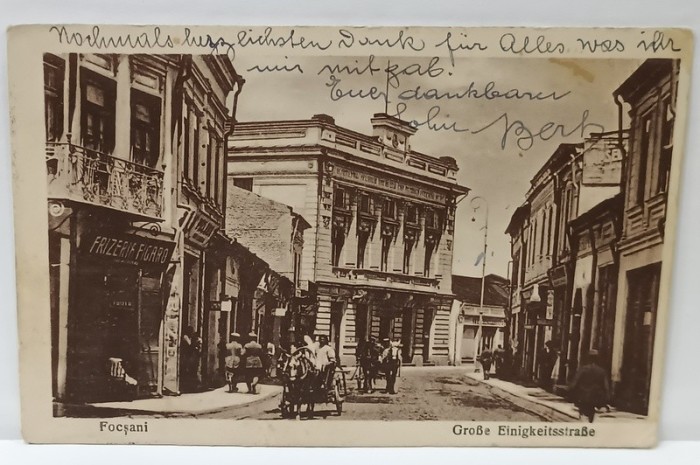 Nochmals herzlichsten Dank für Alles was ihr
mir mitgab.
Euer dankbarer
Sohn
FRIZERIE FIGARO
Focșani
Große Einigkeitsstraße